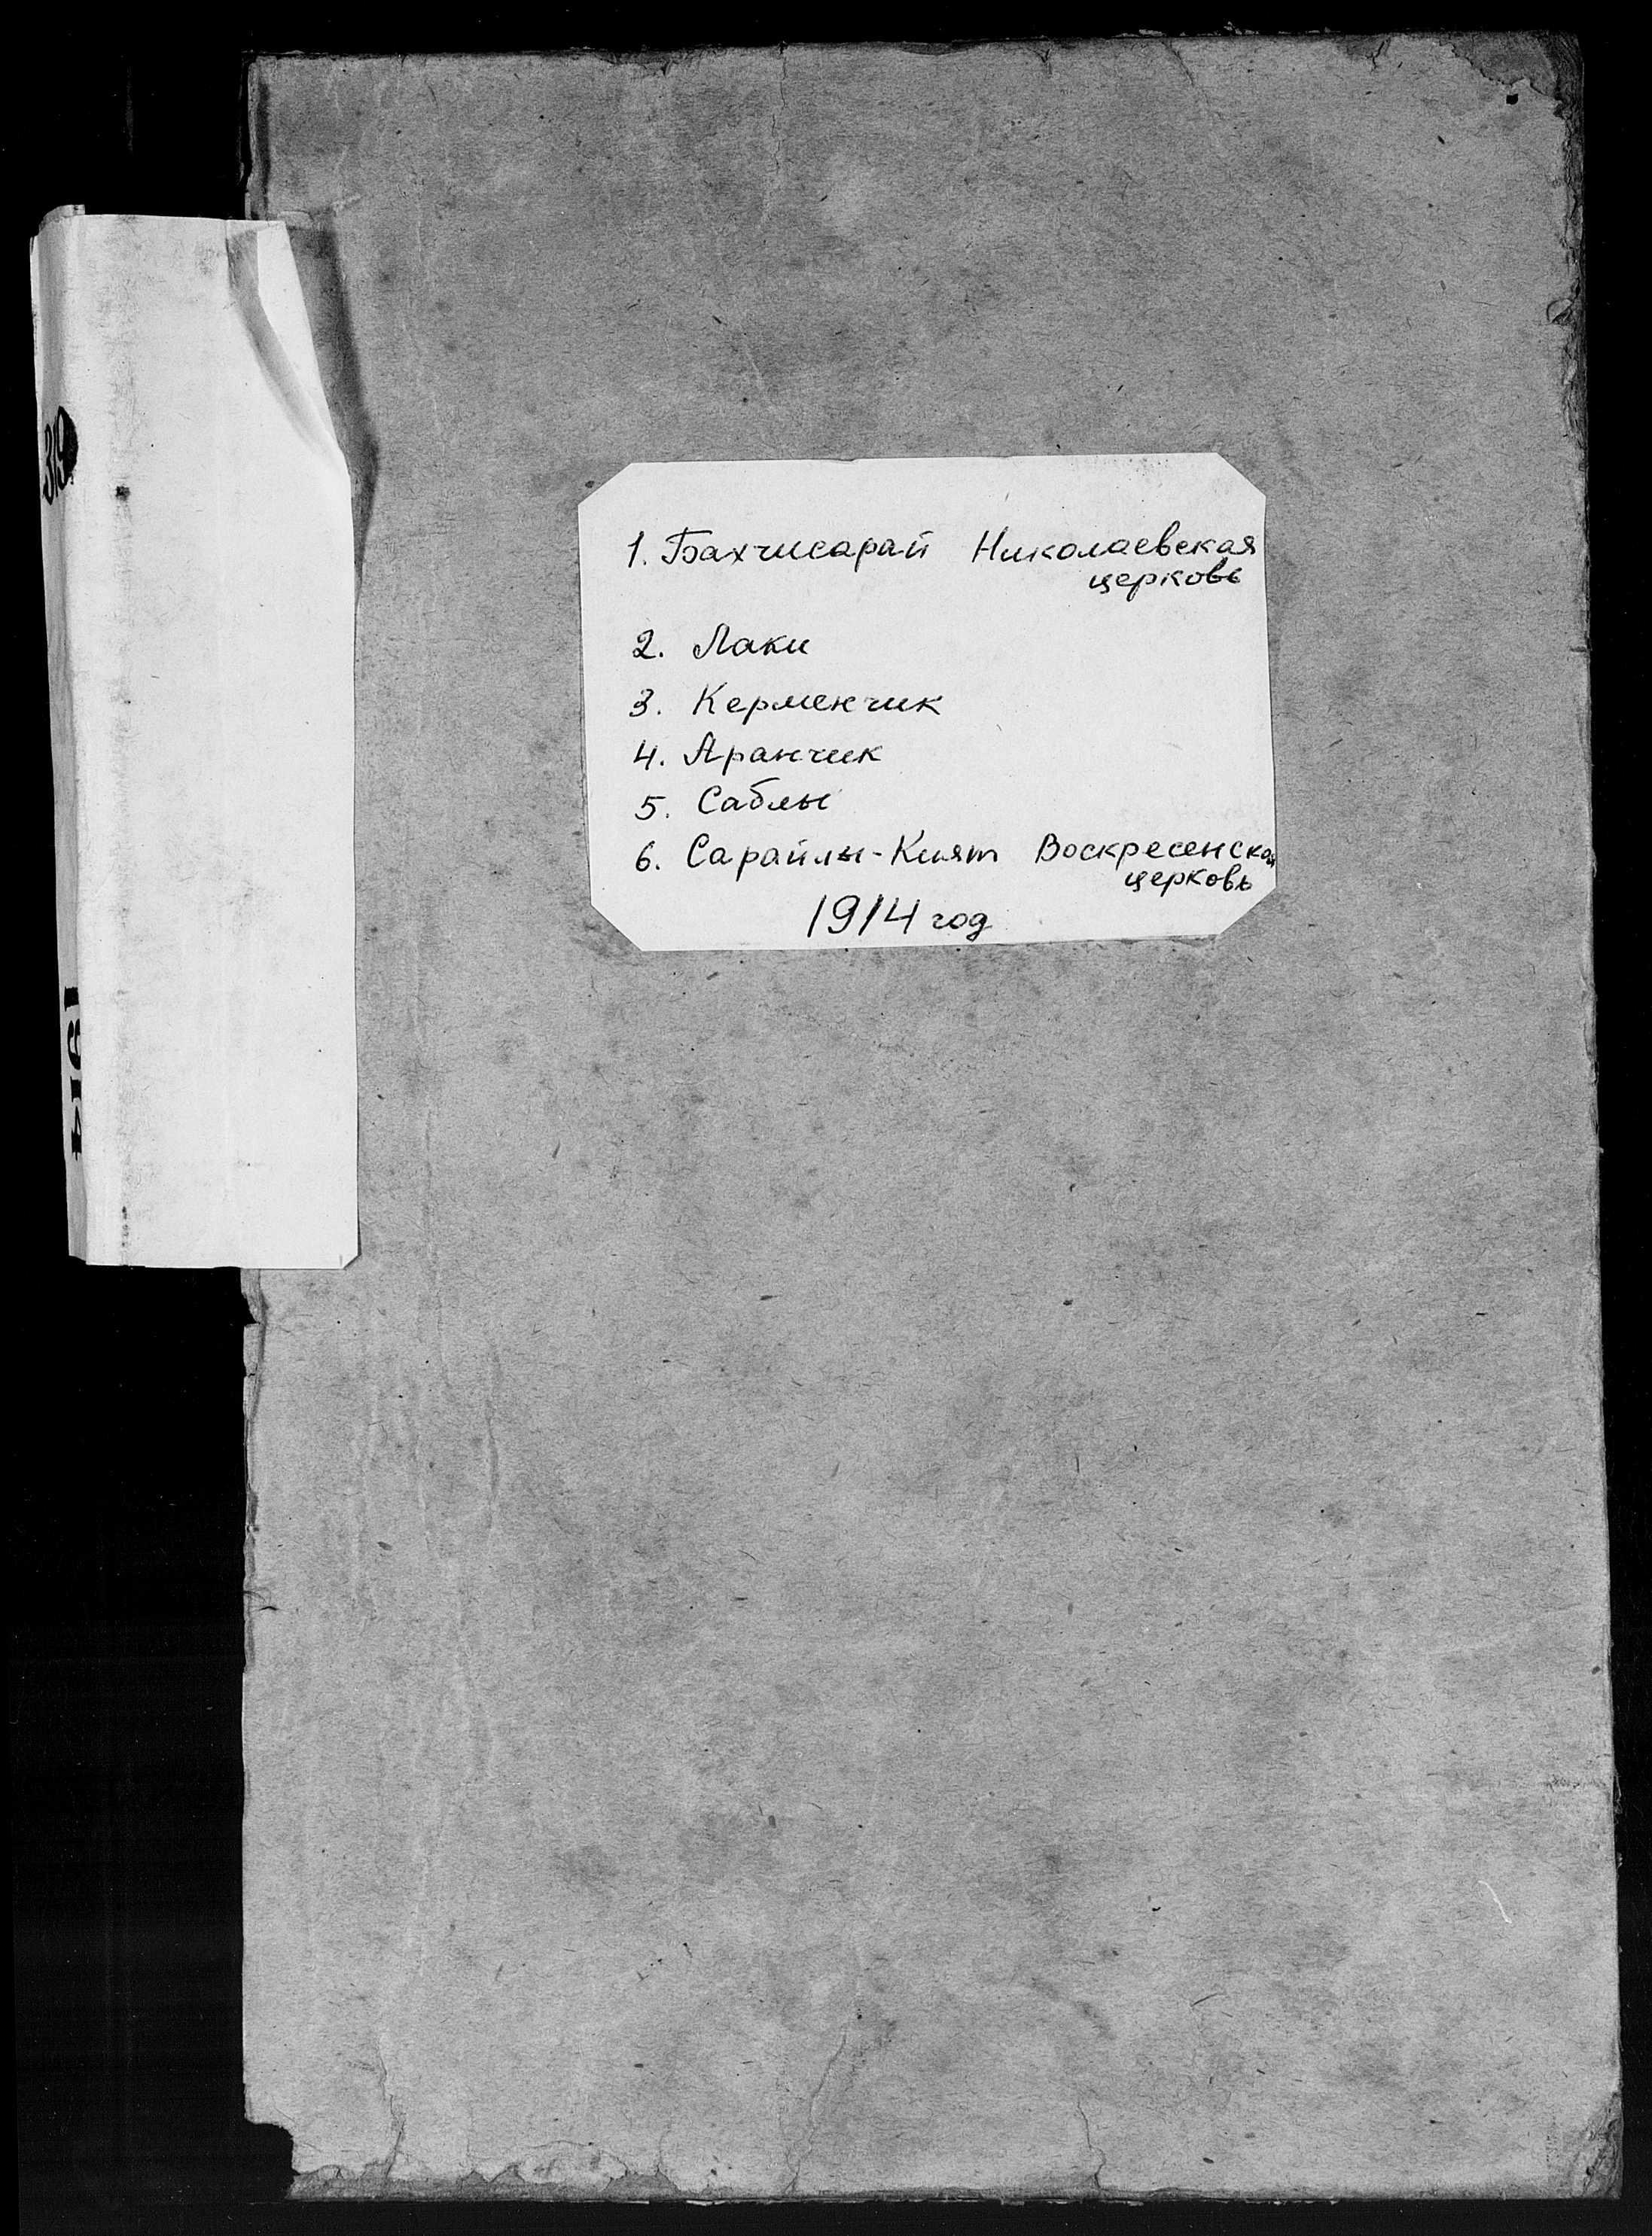 319
1914
1. Бахчисарай Николаевская
церковь
2. Лаки
3. Керменчик
4. Аранчик
5. Саблы
6. Сарайлы-Кият Воскресенская
церковь
1914 год